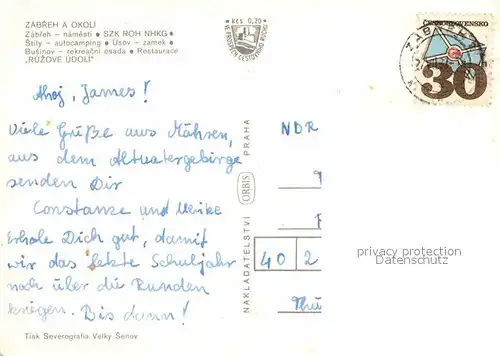 ZÁBŘEH A OKOLÍ
Zábřeh - náměstí • SZK ROH NHKG •
Štíty - autocamping • Úsov - zamek •
Bušínov - rekreační osada • Restaurace
„RŮŽOVÉ ÚDOLÍ"
Kčs 0,20
VE PROSPĚCH CESTOVNÍHO RUCHU
ČESKOSLOVENSKO
30
Ahoj, James!
Viele Grüße aus Mähren,
aus dem Altvatergebirge
senden Dir
Constanze und Meike
Erhole Dich gut, damit
wir das letzte Schuljahr
noch über die Runden
kriegen. Bis dann!
NAKLADATELSTVÍ ORBIS PRAHA
NDR
40 2
Thü
privacy protection
Datenschutz
Tisk Severografia Velký Šenov